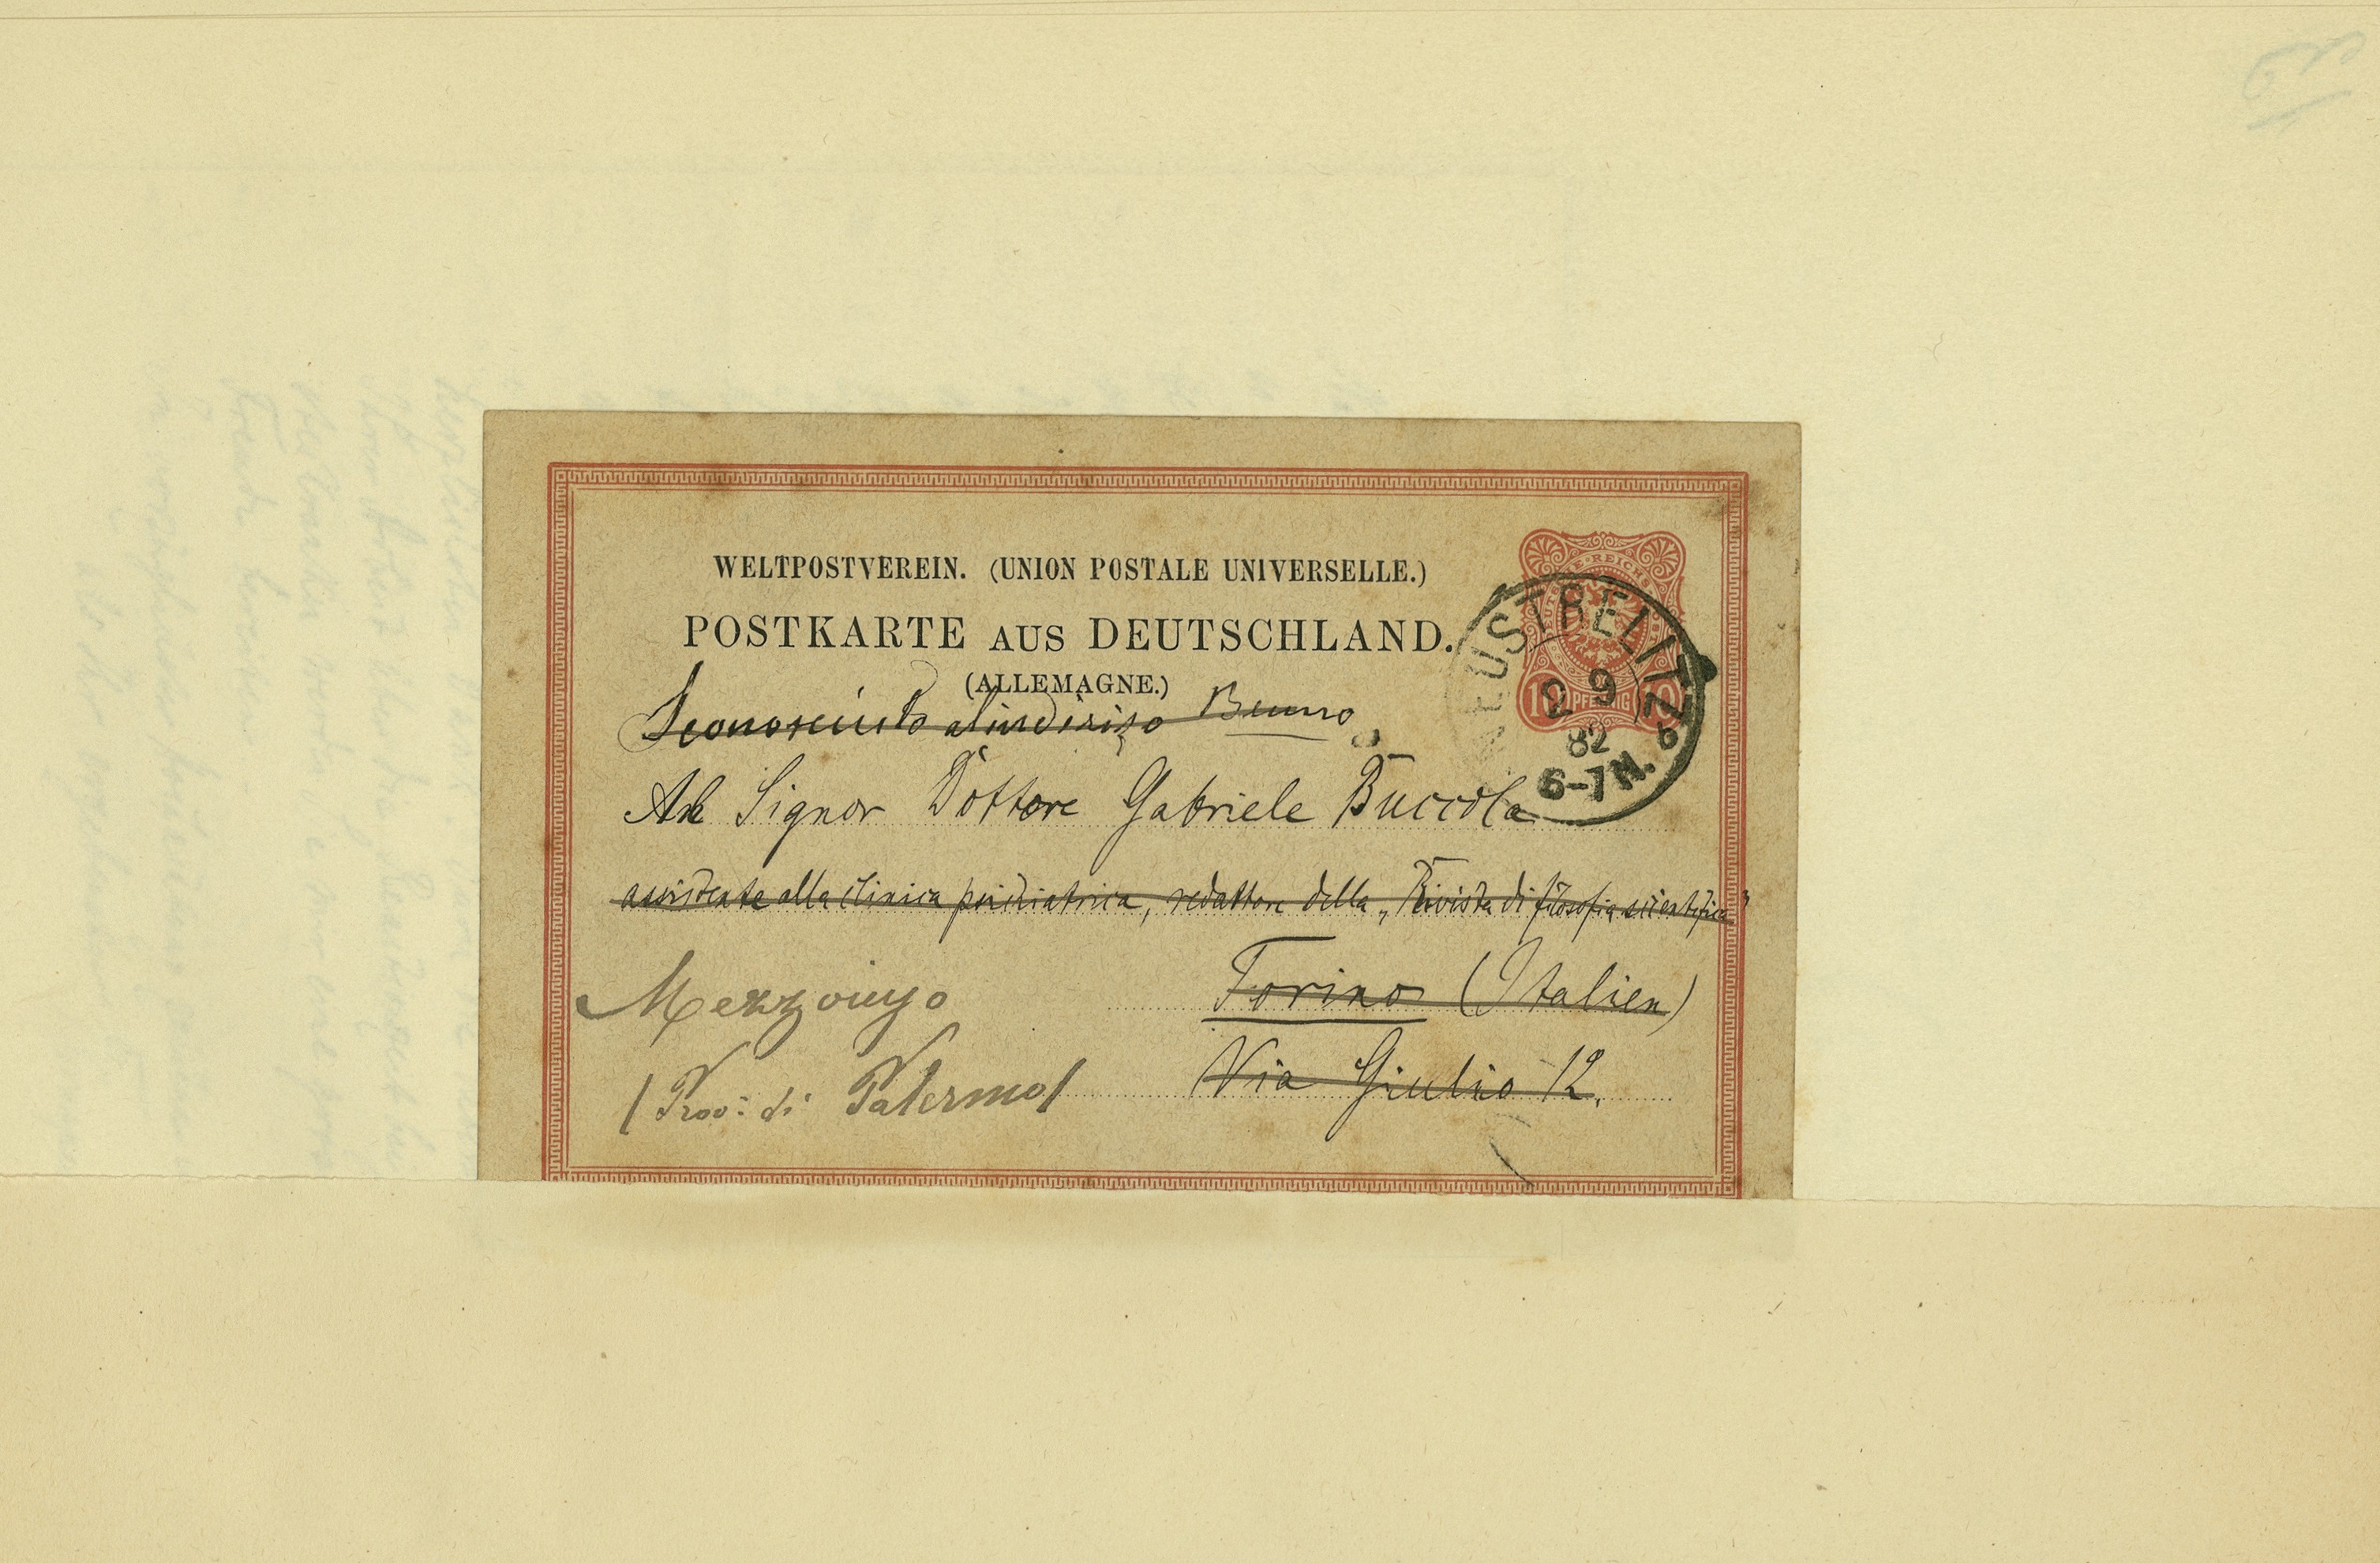 WELTPOSTVEREIN. (UNION POSTALE UNIVERSELLE.)
POSTKARTE AUS DEUTSCHLAND.
(ALLEMAGNE.)
DEUTSCHE REICHSPOST
10 PFENNIG 10
NEUSTRELITZ
2 9
82
6-7 N.
Sconosciuto al indirizzo
Al Signor Dottore Gabriele Buccola
assistente alla clinica psichiatrica, redattore della „Rivista di filosofia scientifica"
Torino (Italien)
Via Giulio 12.
Mezzojuso
(Prov: di Palermo)